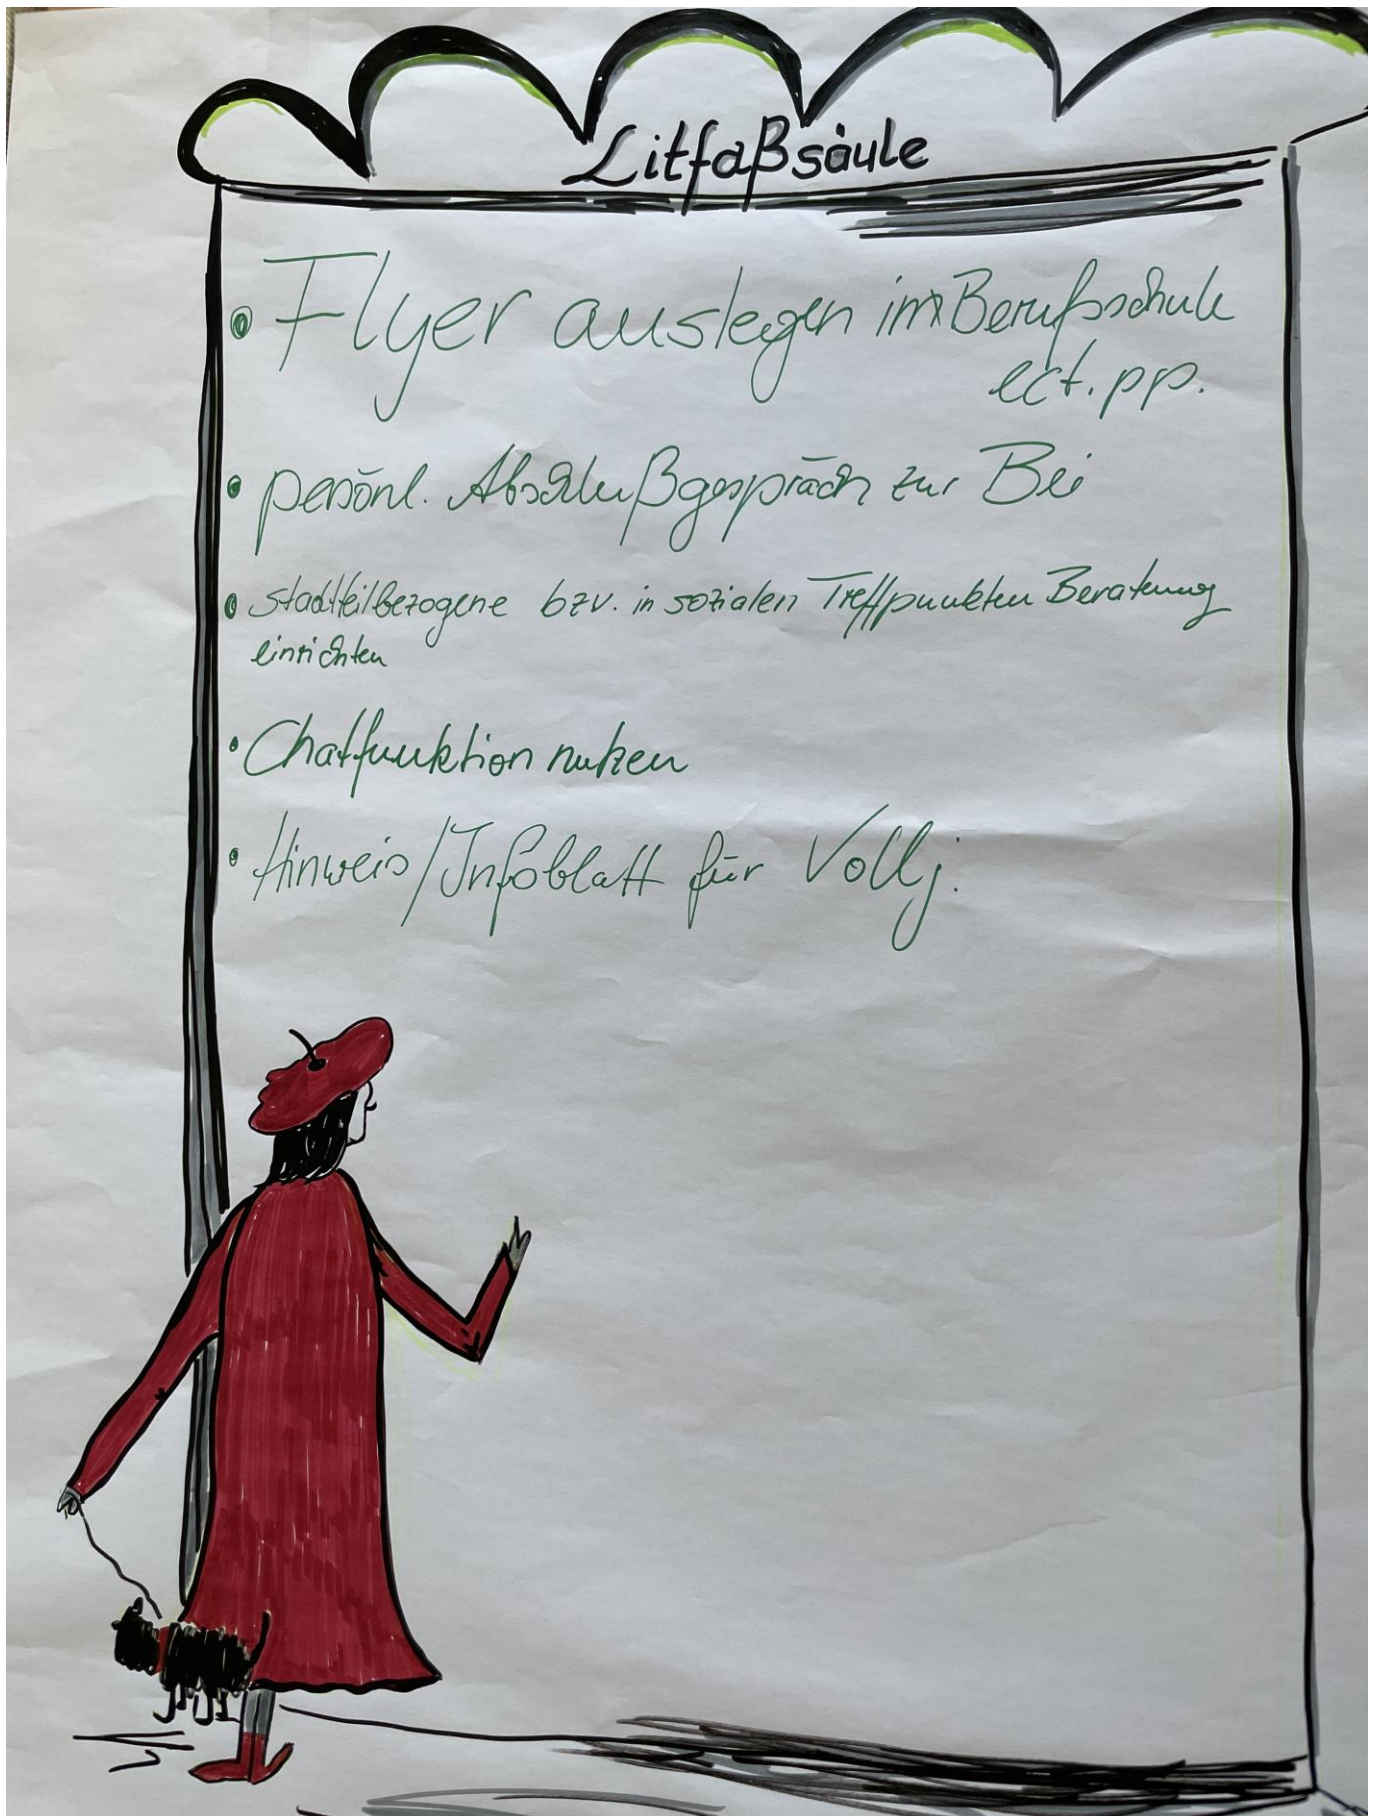 Litfaßsäule
• Flyer auslegen in Berufsschule
ect. pp.
• persönl. Abschlußgespräch zur Bei
• stadtteilbezogene bzw. in sozialen Treffpunkten Beratung
einrichten
• Chatfunktion nutzen
• Hinweis/Infoblatt für Vollj.